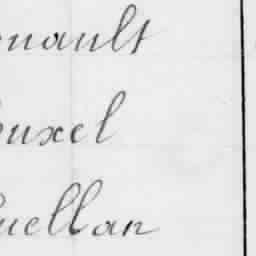 nault
uxel
uellan